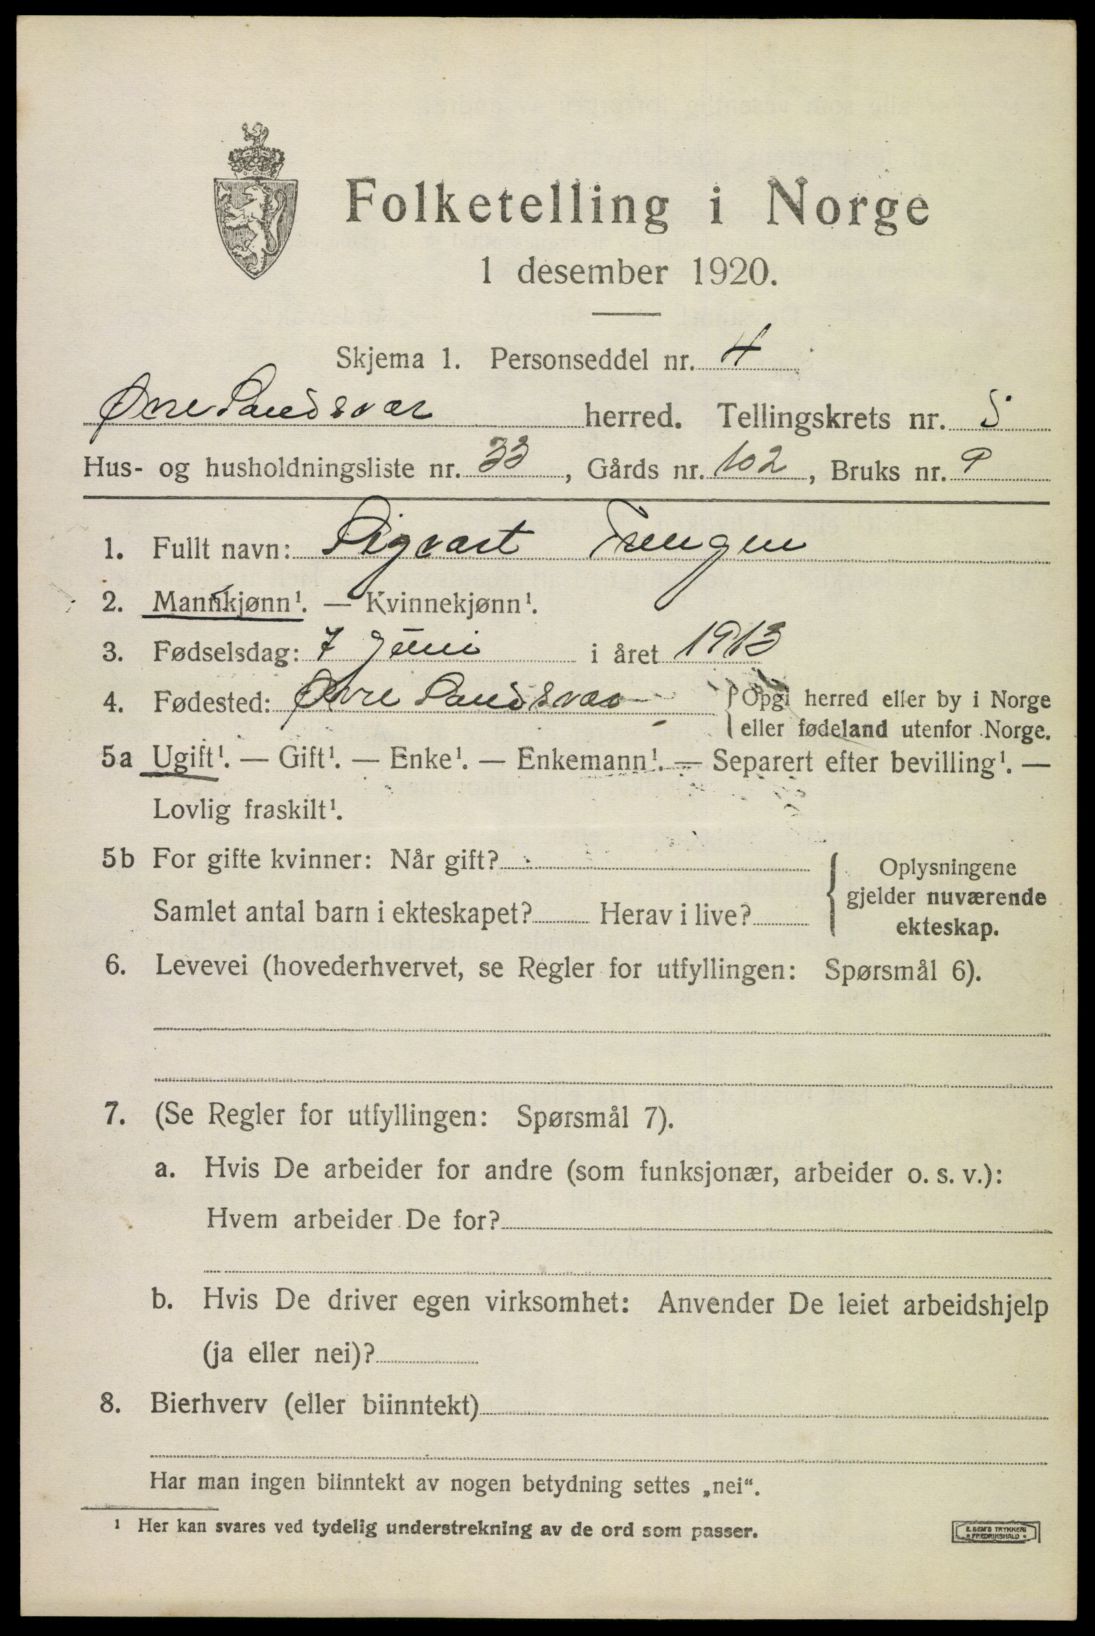 Folketelling i Norge
1 desember 1920.
Skjema 1. Personseddel nr. 4
Øvre Sandsvær herred. Tellingskrets nr. 5
Hus- og husholdningsliste nr. 33, Gårds nr. 102, Bruks nr. 9
1. Fullt navn: Sigvart Trengen
2. Mannkjønn¹. — Kvinnekjønn¹.
3. Fødselsdag: 7 Juni i året 1913
4. Fødested: Øvre Sandsvær { Opgi herred eller by i Norge
eller fødeland utenfor Norge.
5a Ugift¹. — Gift¹. — Enke¹. — Enkemann¹. — Separert efter bevilling¹. —
Lovlig fraskilt¹.
5b For gifte kvinner: Når gift?
Samlet antal barn i ekteskapet? Herav i live?
{ Oplysningene
gjelder nuværende
ekteskap.
6. Levevei (hovederhvervet, se Regler for utfyllingen: Spørsmål 6).
7. (Se Regler for utfyllingen: Spørsmål 7).
a. Hvis De arbeider for andre (som funksjonær, arbeider o. s. v.):
Hvem arbeider De for?
b. Hvis De driver egen virksomhet: Anvender De leiet arbeidshjelp
(ja eller nei)?
8. Bierhverv (eller biinntekt)
Har man ingen biinntekt av nogen betydning settes „nei“.
¹ Her kan svares ved tydelig understrekning av de ord som passer.
E. SEM'S TRYKKERI
FREDRIKSHALD